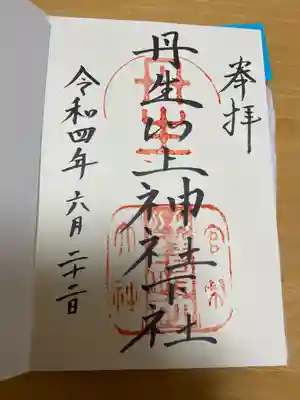 奉拝
丹生川上神社下社
令和四年六月二十二日